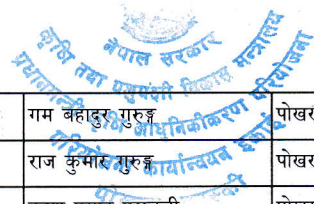 नेपाल सरकार
कृषि तथा पशुपंक्षी विकास मन्त्रालय
प्रधानमन्त्री कृषि आधुनिकीकरण परियोजना
परियोजना कार्यान्वयन इकाई
गम बहादुर गुरुङ्ग पोखर
राज कुमार गुरुङ्ग पोखर